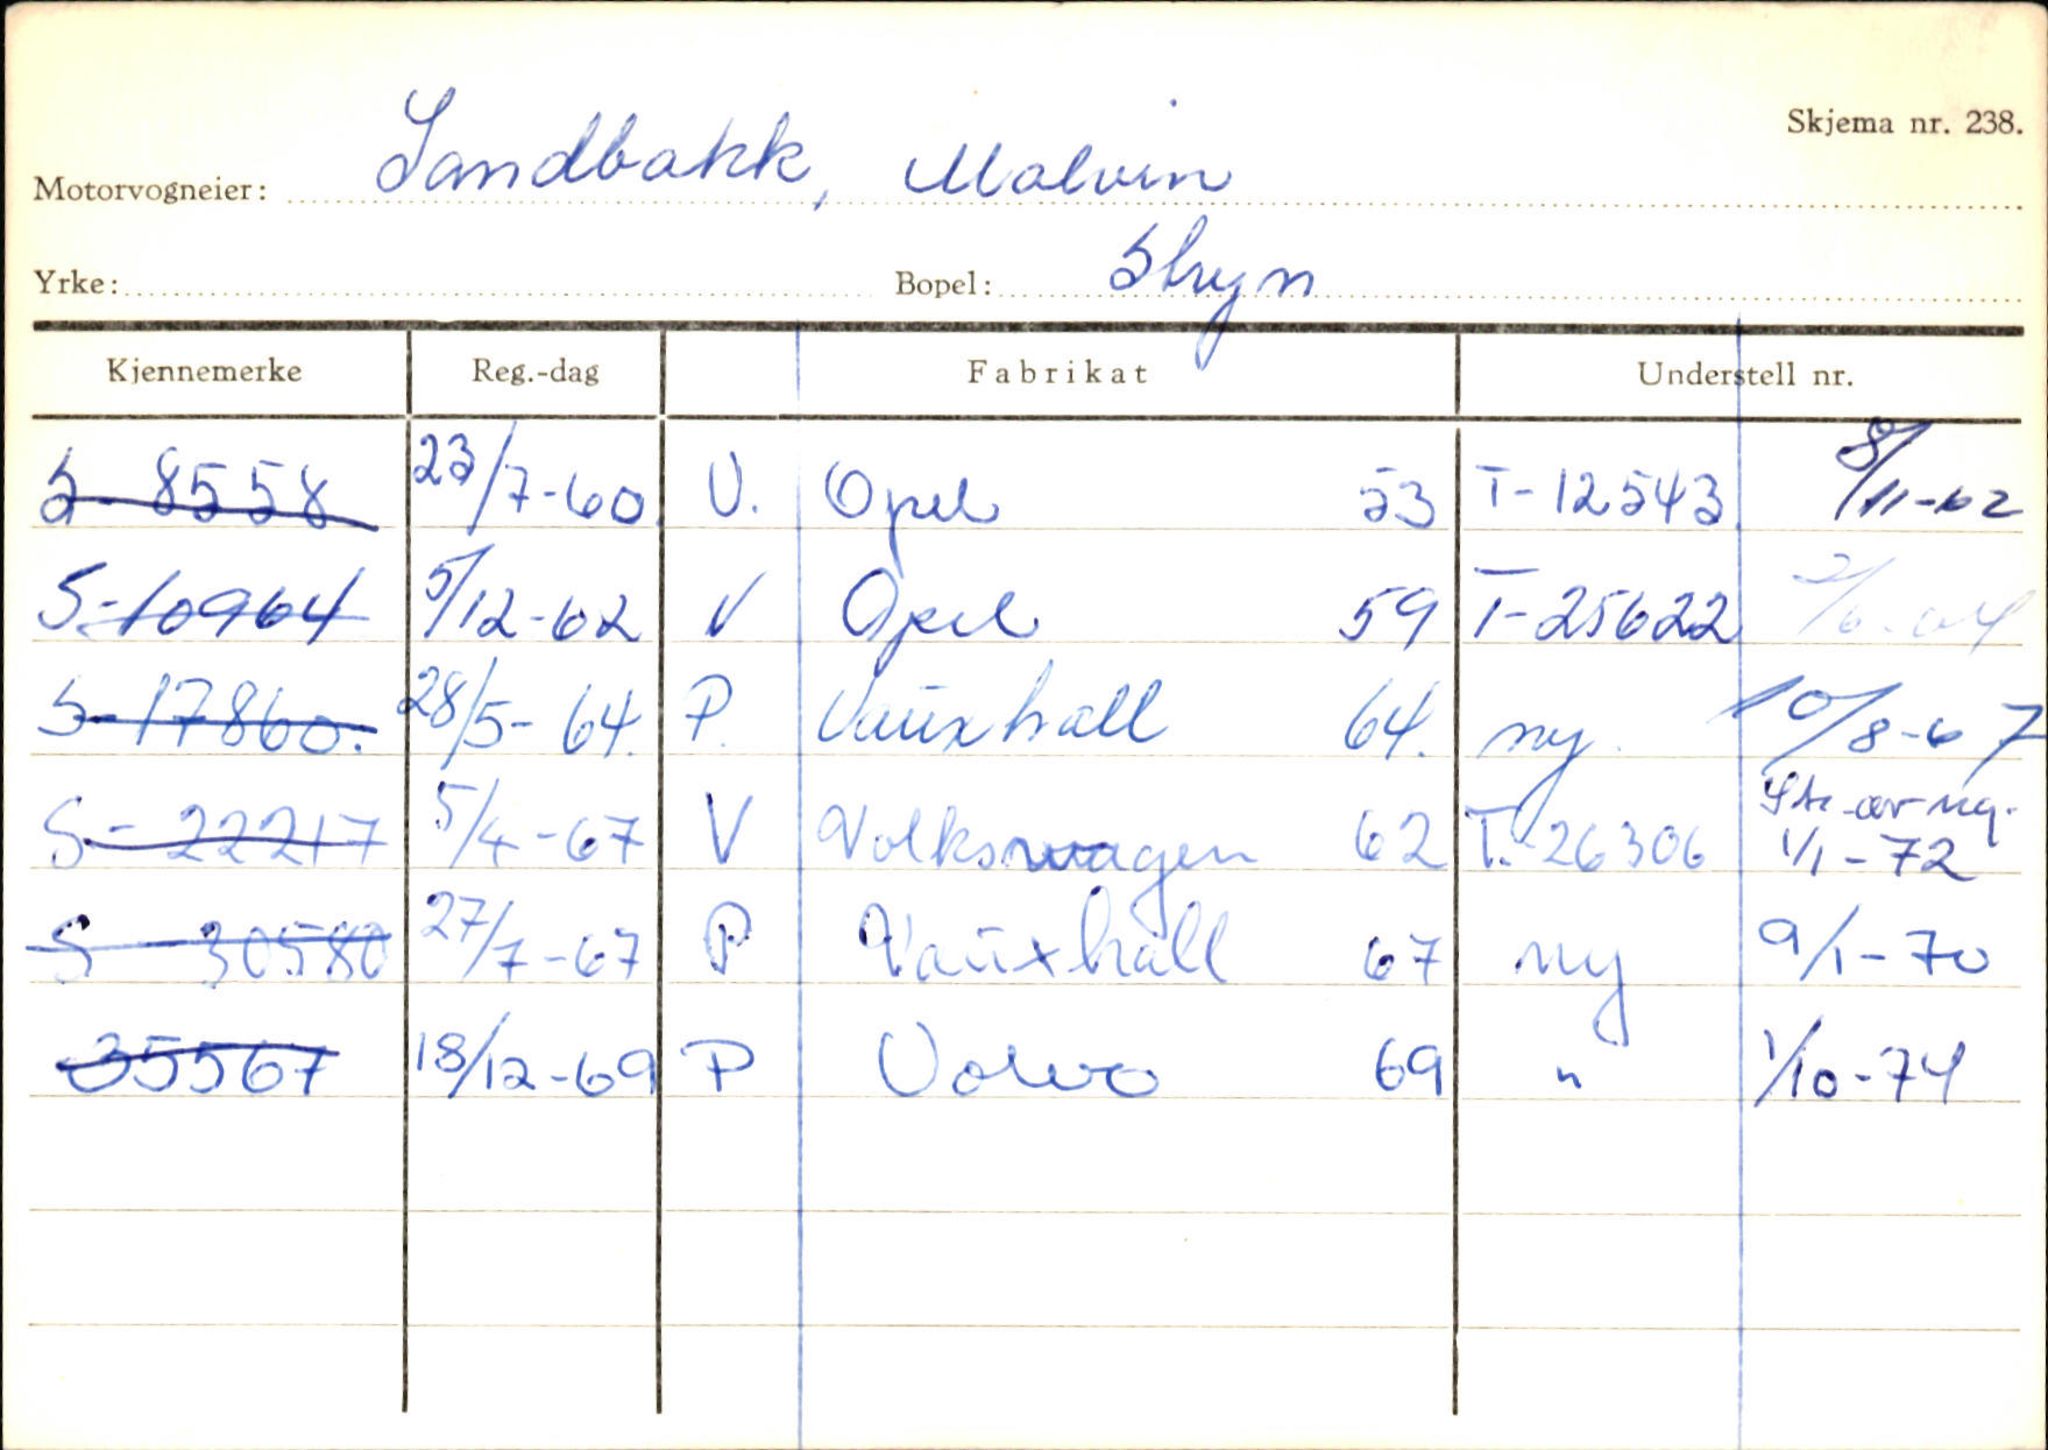 Skjema nr. 238.
Motorvogneier: Sandbakk, Malvin
Yrke: Bopel: Stryn
Kjennemerke Reg.-dag Fabrikat Understell nr.
S-8558 23/7-60 V. Opel 53 T-12543 8/11-62
S-10964 5/12-62 V Opel 59 T-25622 2/6-64
S-17860. 28/5-64. P. Vauxhall 64. ny. 10/8-67
S-22217 5/4-67 V Volkswagen 62 T.-26306 Str. av reg. 1/1-72
S-30580 27/7-67 P Vauxhall 67 ny 9/1-70
35567 18/12-69 P Volvo 69 " 1/10-74